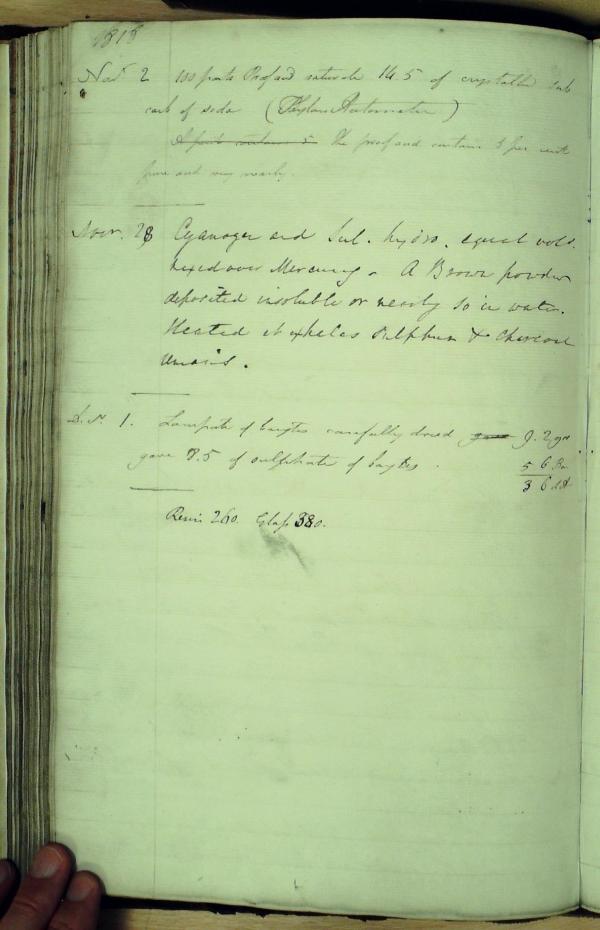 1818
Nov 2 100 parts Proof acid saturate 14.5 of crystalld sub
carb of soda (Taylor
A pint contains 5 The proof acid contains 5 per cent
pure acid very nearly.
Novr. 28 Cyanogen and Sul. hydro. equal vols.
mixed over Mercury. A Brown powder
deposited insoluble or nearly so in water.
Heated it exhales Sulphur & Charcoal
remains.
Dec. 1. Lampate of barytes carefully dried 9.2 grs
gave 8.5 of sulphate of barytes. 5 6 Ba
3 6
Resin 260. Glass 380.